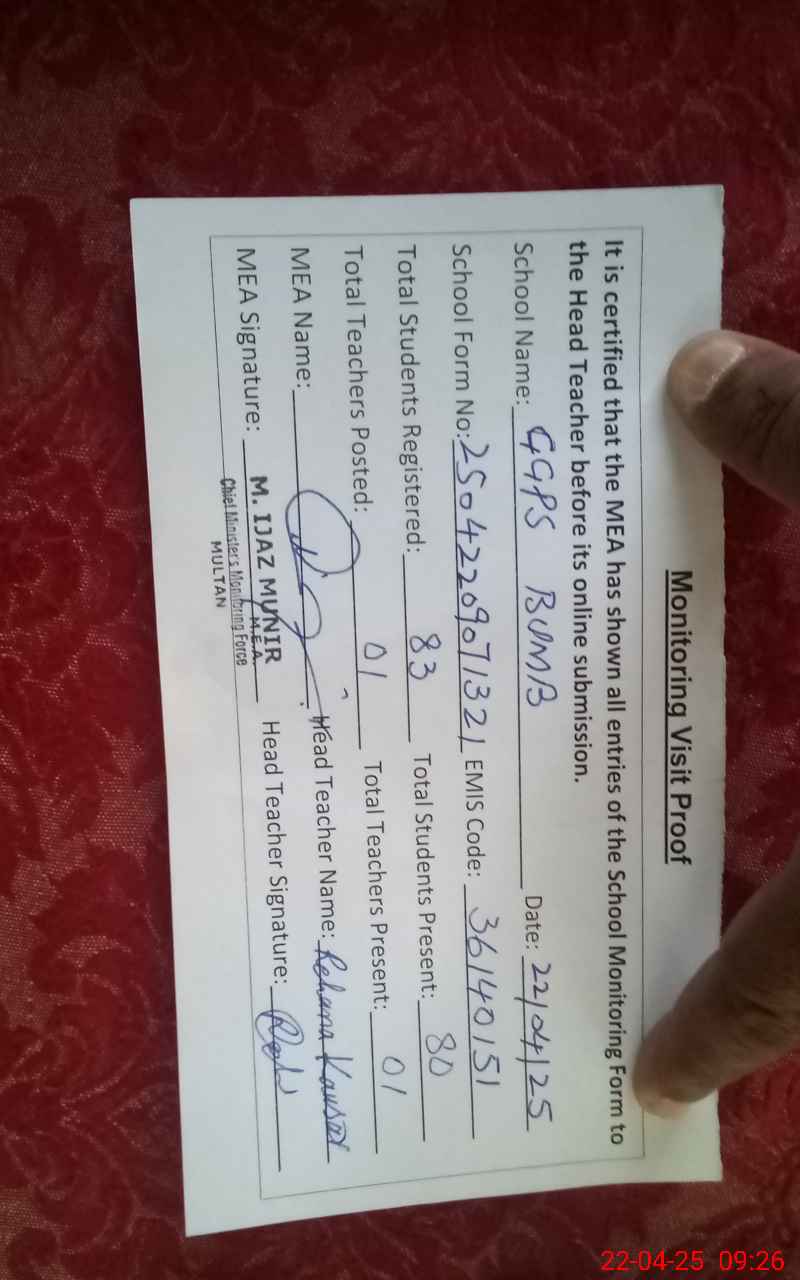 Monitoring Visit Proof
It is certified that the MEA has shown all entries of the School Monitoring Form to
the Head Teacher before its online submission.
School Name: GGPS BUMB Date: 22/04/25
School Form No: 25042209071321 EMIS Code: 36140151
Total Students Registered: 83 Total Students Present: 80
Total Teachers Posted: 01 Total Teachers Present: 01
MEA Name: Head Teacher Name: Rehana Kausar
MEA Signature: Head Teacher Signature:
M. IJAZ MUNIR
M.E.A.
Chief Minister's Monitoring Force
MULTAN
22-04-25 09:26